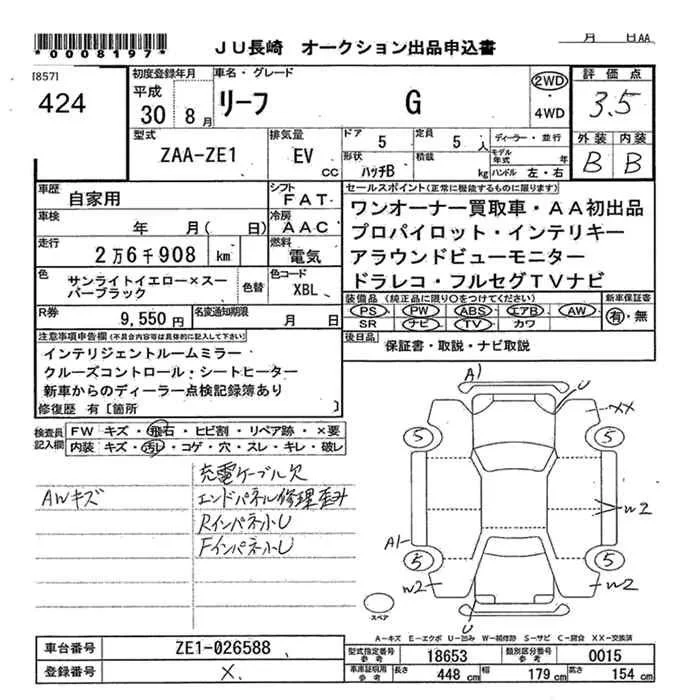 *0008197*
JU長崎 オークション出品申込書
月 日AA
[857]
424
初度登録年月
平成
30 8月
車名・グレード
リーフ G
2WD
4WD
評価点
3.5
外装 内装
B B
型式
ZAA-ZE1
排気量
EV
CC
ドア
5
定員
5人
ディーラー・並行
形状
ハッチB
積載
kg
モデル年式 年
ハンドル 左・右
車歴
自家用
シフト
FAT
車検
年 月( 日)
冷房
AAC
走行
2万6千908 km
燃料
電気
色
サンライトイエロー×スーパーブラック
色替
色コード
XBL
R券
9,550円
名変通知期限
月 日
セールスポイント(正常に機能するものに限ります)
ワンオーナー買取車・AA初出品
プロパイロット・インテリキー
アラウンドビューモニター
ドラレコ・フルセグTVナビ
装備品(純正品に限り○をつけてください)
PS PW ABS エアB AW
SR ナビ TV カワ
新車保証書
有・無
後日品
保証書・取説・ナビ取説
注意事項申告欄(不具合内容等は具体的に記入して下さい)
インテリジェントルームミラー
クルーズコントロール・シートヒーター
新車からのディーラー点検記録簿あり
修復歴 有[箇所 ]
検査員記入欄
FW キズ・飛石・ヒビ割・リペア跡・×要
内装 キズ・汚れ・コゲ・穴・スレ・キレ・破レ
充電ケーブル欠
AWキズ
エンドパネル修理歪み
Rインパネ小U
Fインパネ小U
A1
U
××
5
5
W2
A1
5
5
W2
W2
U
スペア
A-キズ E-エクボ U-凹み W-補修跡 S-サビ C-腐食 XX-交換済
車台番号
ZE1-026588
登録番号
×
型式指定番号
参考
18653
類別区分番号
参考
0015
車庫証明用
参考
長さ
448 cm
幅
179 cm
高さ
154 cm